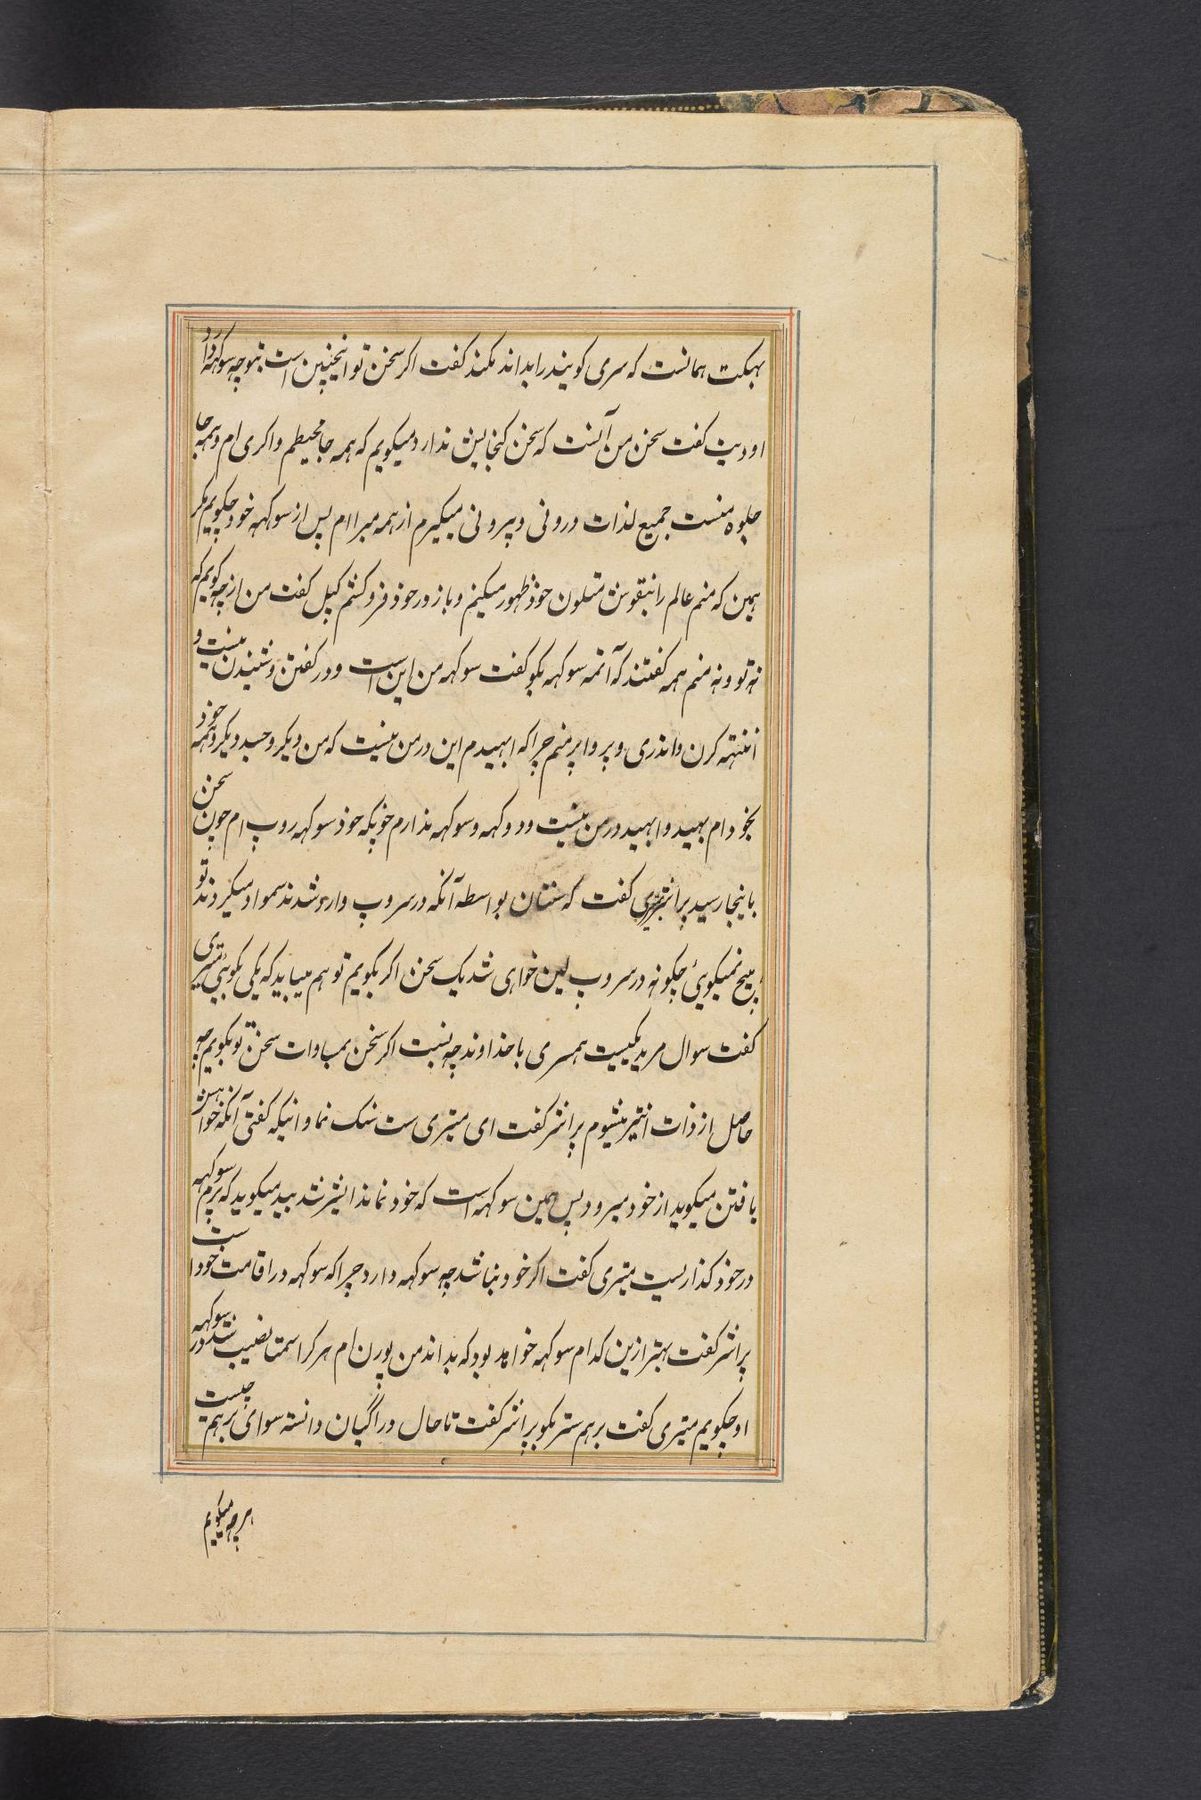 بهکت همانست که سری کویندرا بداند مکند کفت اکر سخن تو اینچنین است بتو چه سوکهه دارد
اودیت کفت سخن من آنست که سخن کنجایش ندارد میکویم که همه جا محیطم واکری ام وهمه جا
جلوه منست جمیع لذات درونی وبیرونی میکیرم از همه مبرا ام پس از سوکهه خود چکویم مکر
همین که منم عالم را بنقوش متلون خود ظهور میکنم وباز در خود فرو کشم کپل کفت من از چه کویم که
نه تو ونه منم همه کفتند که آتمه سوکهه بکو کفت سوکهه من این است ودر کفتن وشنیدن نیست و
انتهه کرن واندری وبر واپر منم چرا که ابهیدم این در من نیست که من دیکر وحید دیکر وهمه خود
بخود ام بهید وابهید در من نیست ودوکهه وسوکهه ندارم خوبکه خود سوکهه روپ ام چون سخن
باینجا رسید پرانتر متیری کفت که سنتان بواسطه آنکه در سروپ وارد شدند سمواد میکردند تو
هیچ نمیکوئی چکونه در سروپ لین خواهی شد یک سخن اکر بکویم تو هم میباید که یکی بکوئی متیری
کفت سوال مرید یکیست همسری با خداوند چه نسبت اکر سخن بمساوات سخن تو بکویم چه
حاصل از ذات انتیر میشوم پرانتر کفت ای متیری ست سنک نما وانیکه کفتی آنکه خواهش
یافتن میکوید از خود میرود پس همین سوکهه است که خود نماند انیشر شد بید میکوید که پرم سوکهه
در خود کذاریست متیری کفت اکر خود نباشد چه سوکهه دارد چرا که سوکهه در اقامت خود است
پرانتر کفت بهتر ازین کدام سوکهه خواهد بود که بداند من پورن ام هر کرا سمت نصیب شد در سوکهه
او چکویم متیری کفت برهم ستر بکو پرانتر کفت تا حال در اکیان دانسته سوای برهم چیست
هر چه میکویم